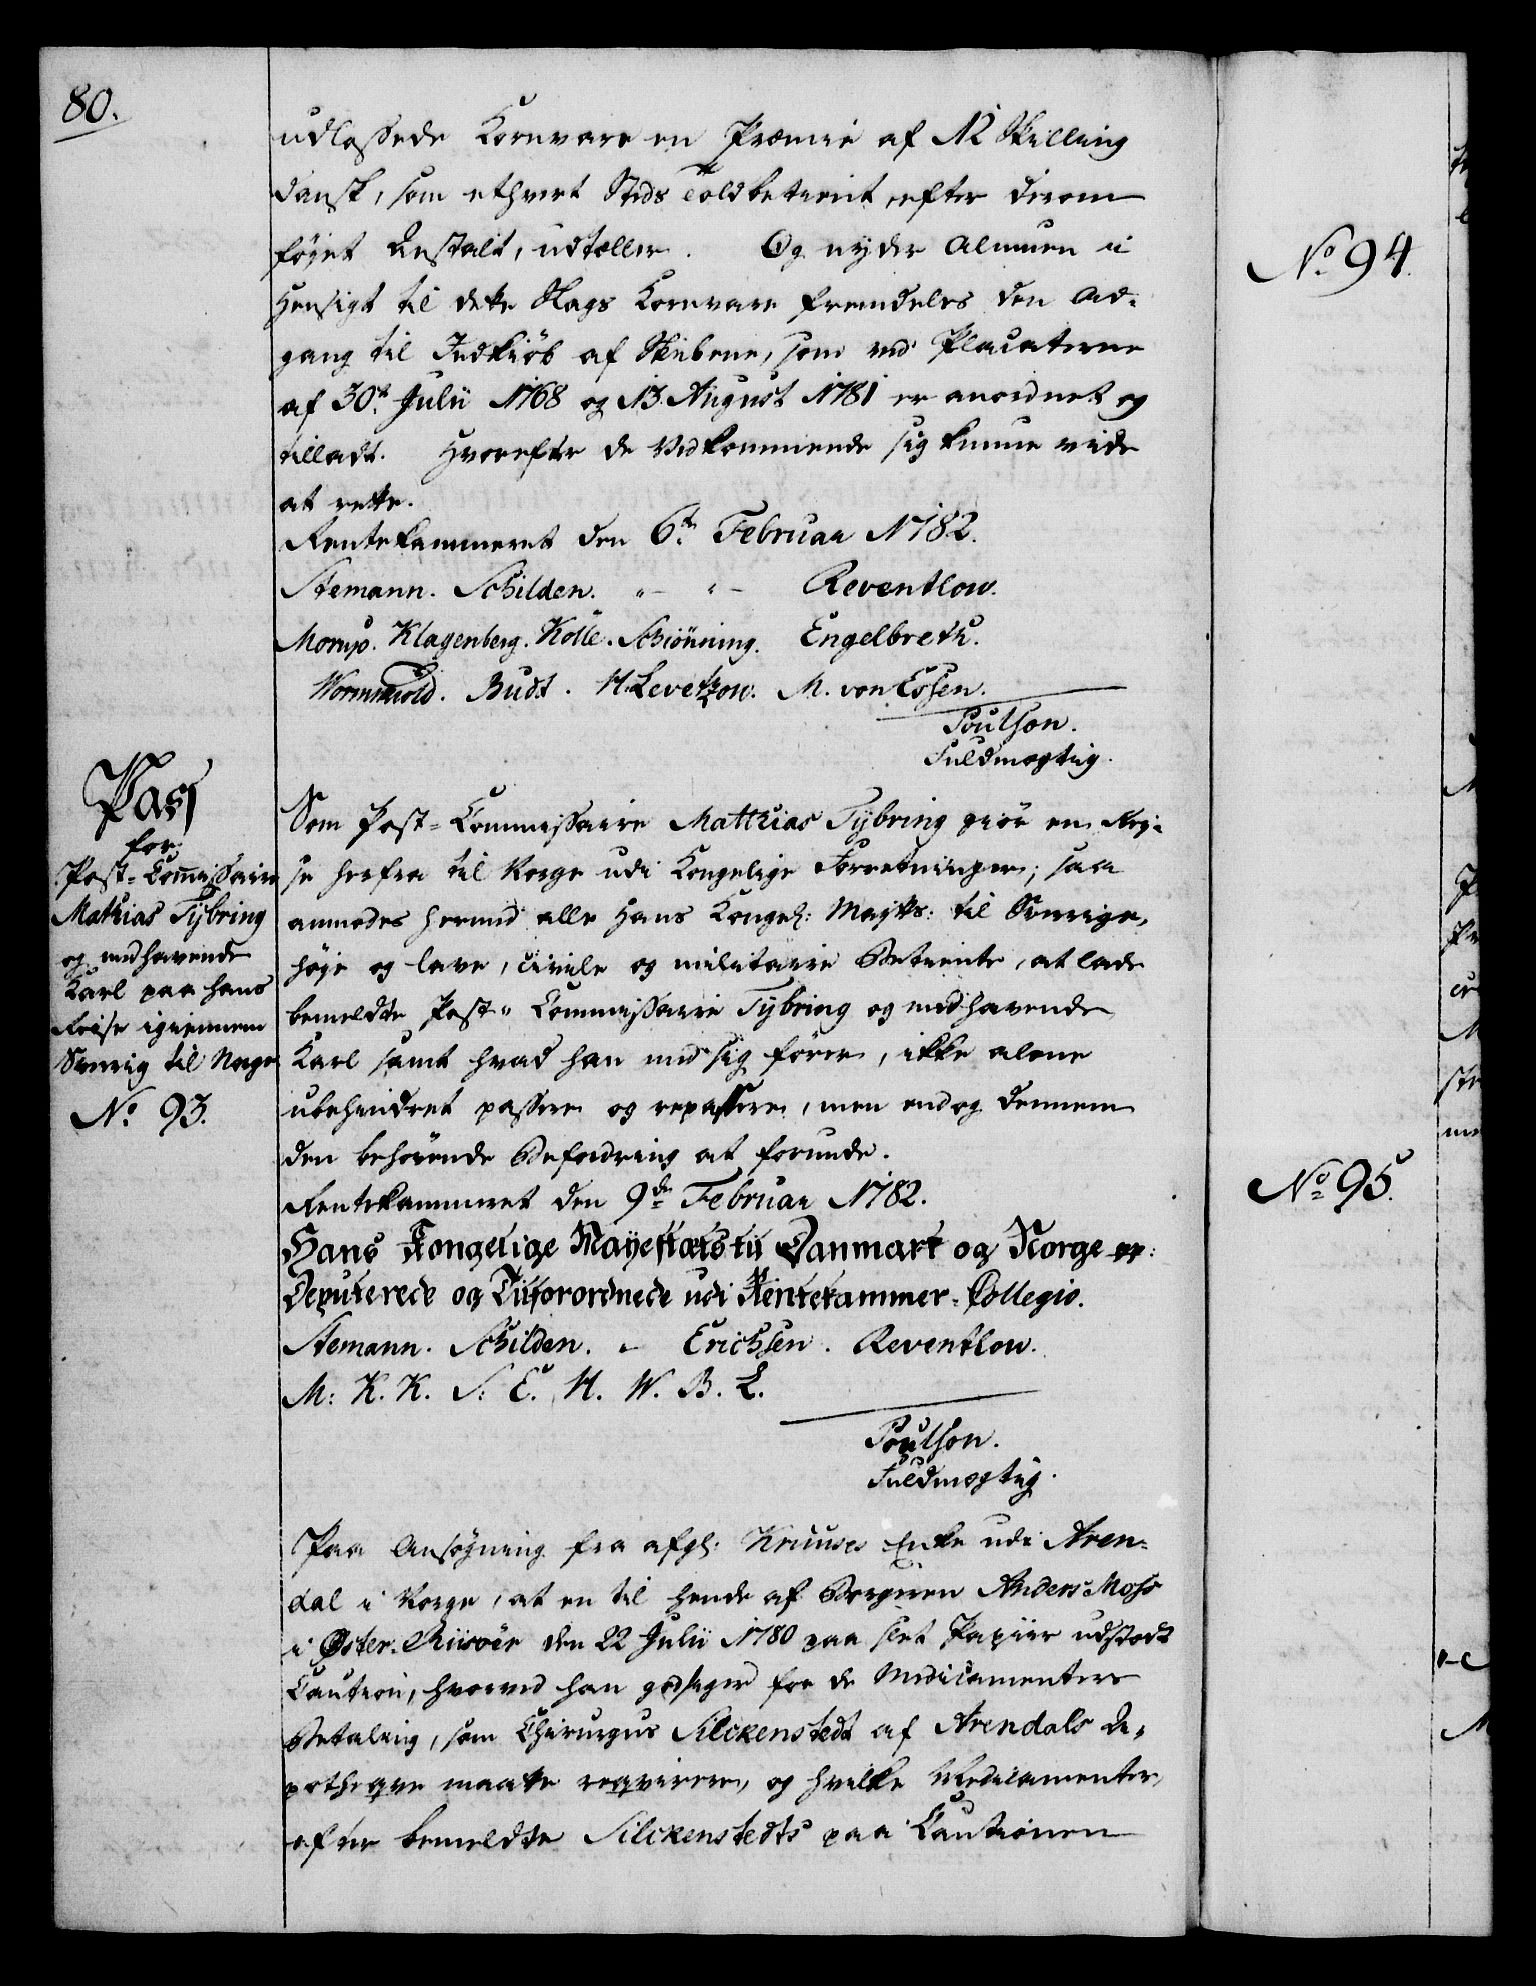 80.
udlossede Kornvare en Præmie af 12 Skilling
dansk, som ethvert Steds Toldbetient, efter derom
føyet Anstalt, udtæller. Og nyder Almuen i
Hensigt til dette Slags Kornvare fremdeeles den Ad-
gang til Indkiøb af Skibene, som ved Placaterne
af 30te Julii 1768 og 13 August 1781 er anordnet og
tilladt. Hvorefter de Vedkommende sig kunne vide
at rette.
Rentekammeret den 6te Februar 1782.
Stemann. Schilden. " - " - Reventlow.
Morup. Klagenberg. Kølle. Schiønning. Engelbreth.
Wormskiold. Budt. H. Levetzow. M. von Essen.
Poulson.
Fuldmægtig.
Pass
for
Post-Com̄issaire
Mathias Tybring
og medhavende
Karl paa hans
Reise igiennem
Sverrig til Norge
No. 93.
Som Post-Commissaire Matthias Tybring giør en Rey-
se herfra til Norge udi Kongelige Forretninger; saa
anmodes herved alle Hans Kongel: Mayts: til Sverrige,
høye og lave, civile og militaire Betiente, at lade
bemeldte Post- Commissaire Tybring og medhavende
Karl samt hvad han med sig fører, ikke alene
ubehindret passere og repassere, men endog dennem
den behøvende Befordring at forunde.
Rentekammeret den 9de Februar 1782.
Hans Kongelige Mayestæts til Danmark og Norge ꝛc:
Deputerede og Tilforordnede udi Rentekammer-Collegio.
Stemann. Schilden. - Erichsen. Reventlow.
M: K. K. S: E. H. W. B. L.
Poulson.
Fuldmægtig.
Paa Ansøgning fra afg: Kruuses Enke udi Aren-
dal i Norge, at en til hende af Borgeren Anders Moss
i Øster-Riisøer den 22 Julii 1780 paa slet Papiir udstædt
Caution, hvorved han godsiger for de Medicamenters
Betaling, som Chirurgus Silckenstedt af Arendals A-
potheqve maatte reqvirere, og hvilke Medicamenter,
efter bemeldte Silckenstedts paa Cautionen
No. 94.
No. 95.